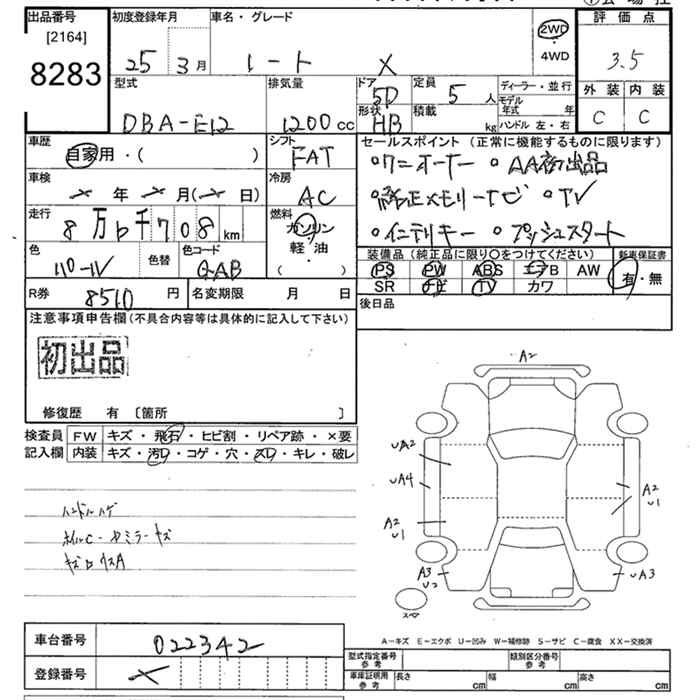 出品番号
[2164]
8283
初度登録年月
25 3月
車名・グレード
ノート X
2WD
・
4WD
評価点
3.5
外装 内装
C C
型式
DBA-E12
排気量
1200cc
ドア
5D
形状
HB
定員
5人
積載
kg
ディーラー・並行
モデル
年式 年
ハンドル 左・右
車歴
自家用・( )
シフト
FAT
車検
年 月( 日)
冷房
AC
走行
8万6千708km
燃料
ガソリン
軽・油
( )
色
パール
色替
色コード
QAB
R券
8510円
名変期限 月 日
セールスポイント(正常に機能するものに限ります)
・ワンオーナー ・AA初出品
・純正メモリーナビ ・TV
・インテリキー ・プッシュスタート
装備品(純正品に限り〇をつけてください)
新車保証書
PS PW ABS エアB AW
SR ナビ TV カワ
有・無
後日品
注意事項申告欄(不具合内容等は具体的に記入して下さい)
初出品
修復歴 有〔箇所 〕
検査員
記入欄
FW キズ・飛石・ヒビ割・リペア跡・×要
内装 キズ・汚レ・コゲ・穴・スレ・キレ・破レ
ハンドルハゲ
ホイルC-ドミラーキズ
A2
UA2
UA4
A2
U1
A2
U1
A3
U2
UA3
スペア
A-キズ E-エクボ U-凹み W-補修跡 S-サビ C-腐食 XX-交換済
車台番号 022342
登録番号
型式指定番号
参考
類別区分番号
参考
車庫証明用
参考
長さ cm 幅 cm 高さ cm